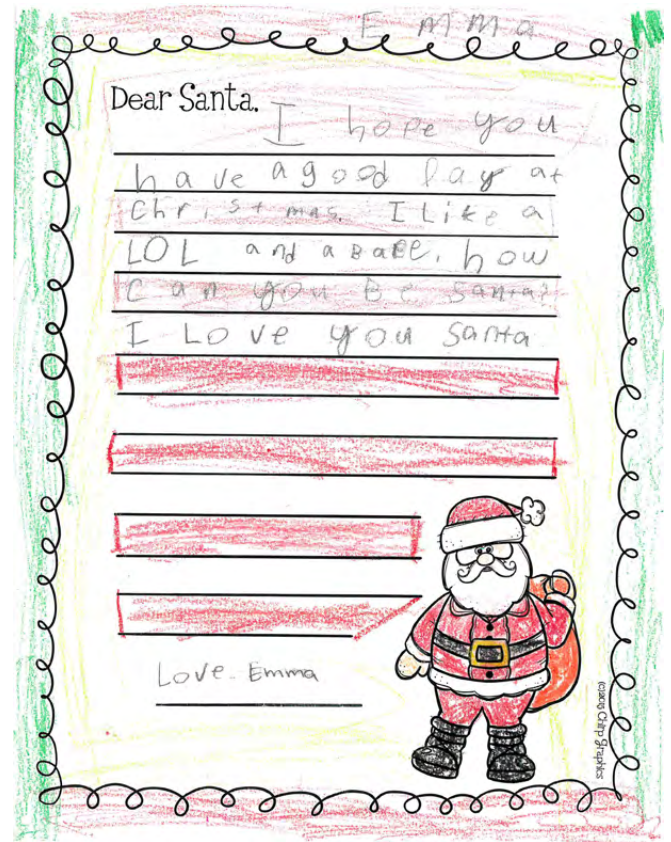 Emma
Dear Santa,
I hope you
have a good Day at
christmas. I Like a
LOL and a BaBE. how
can you BE Santa?
I Love you Santa
Love. Emma
©2015 Chirp Graphics